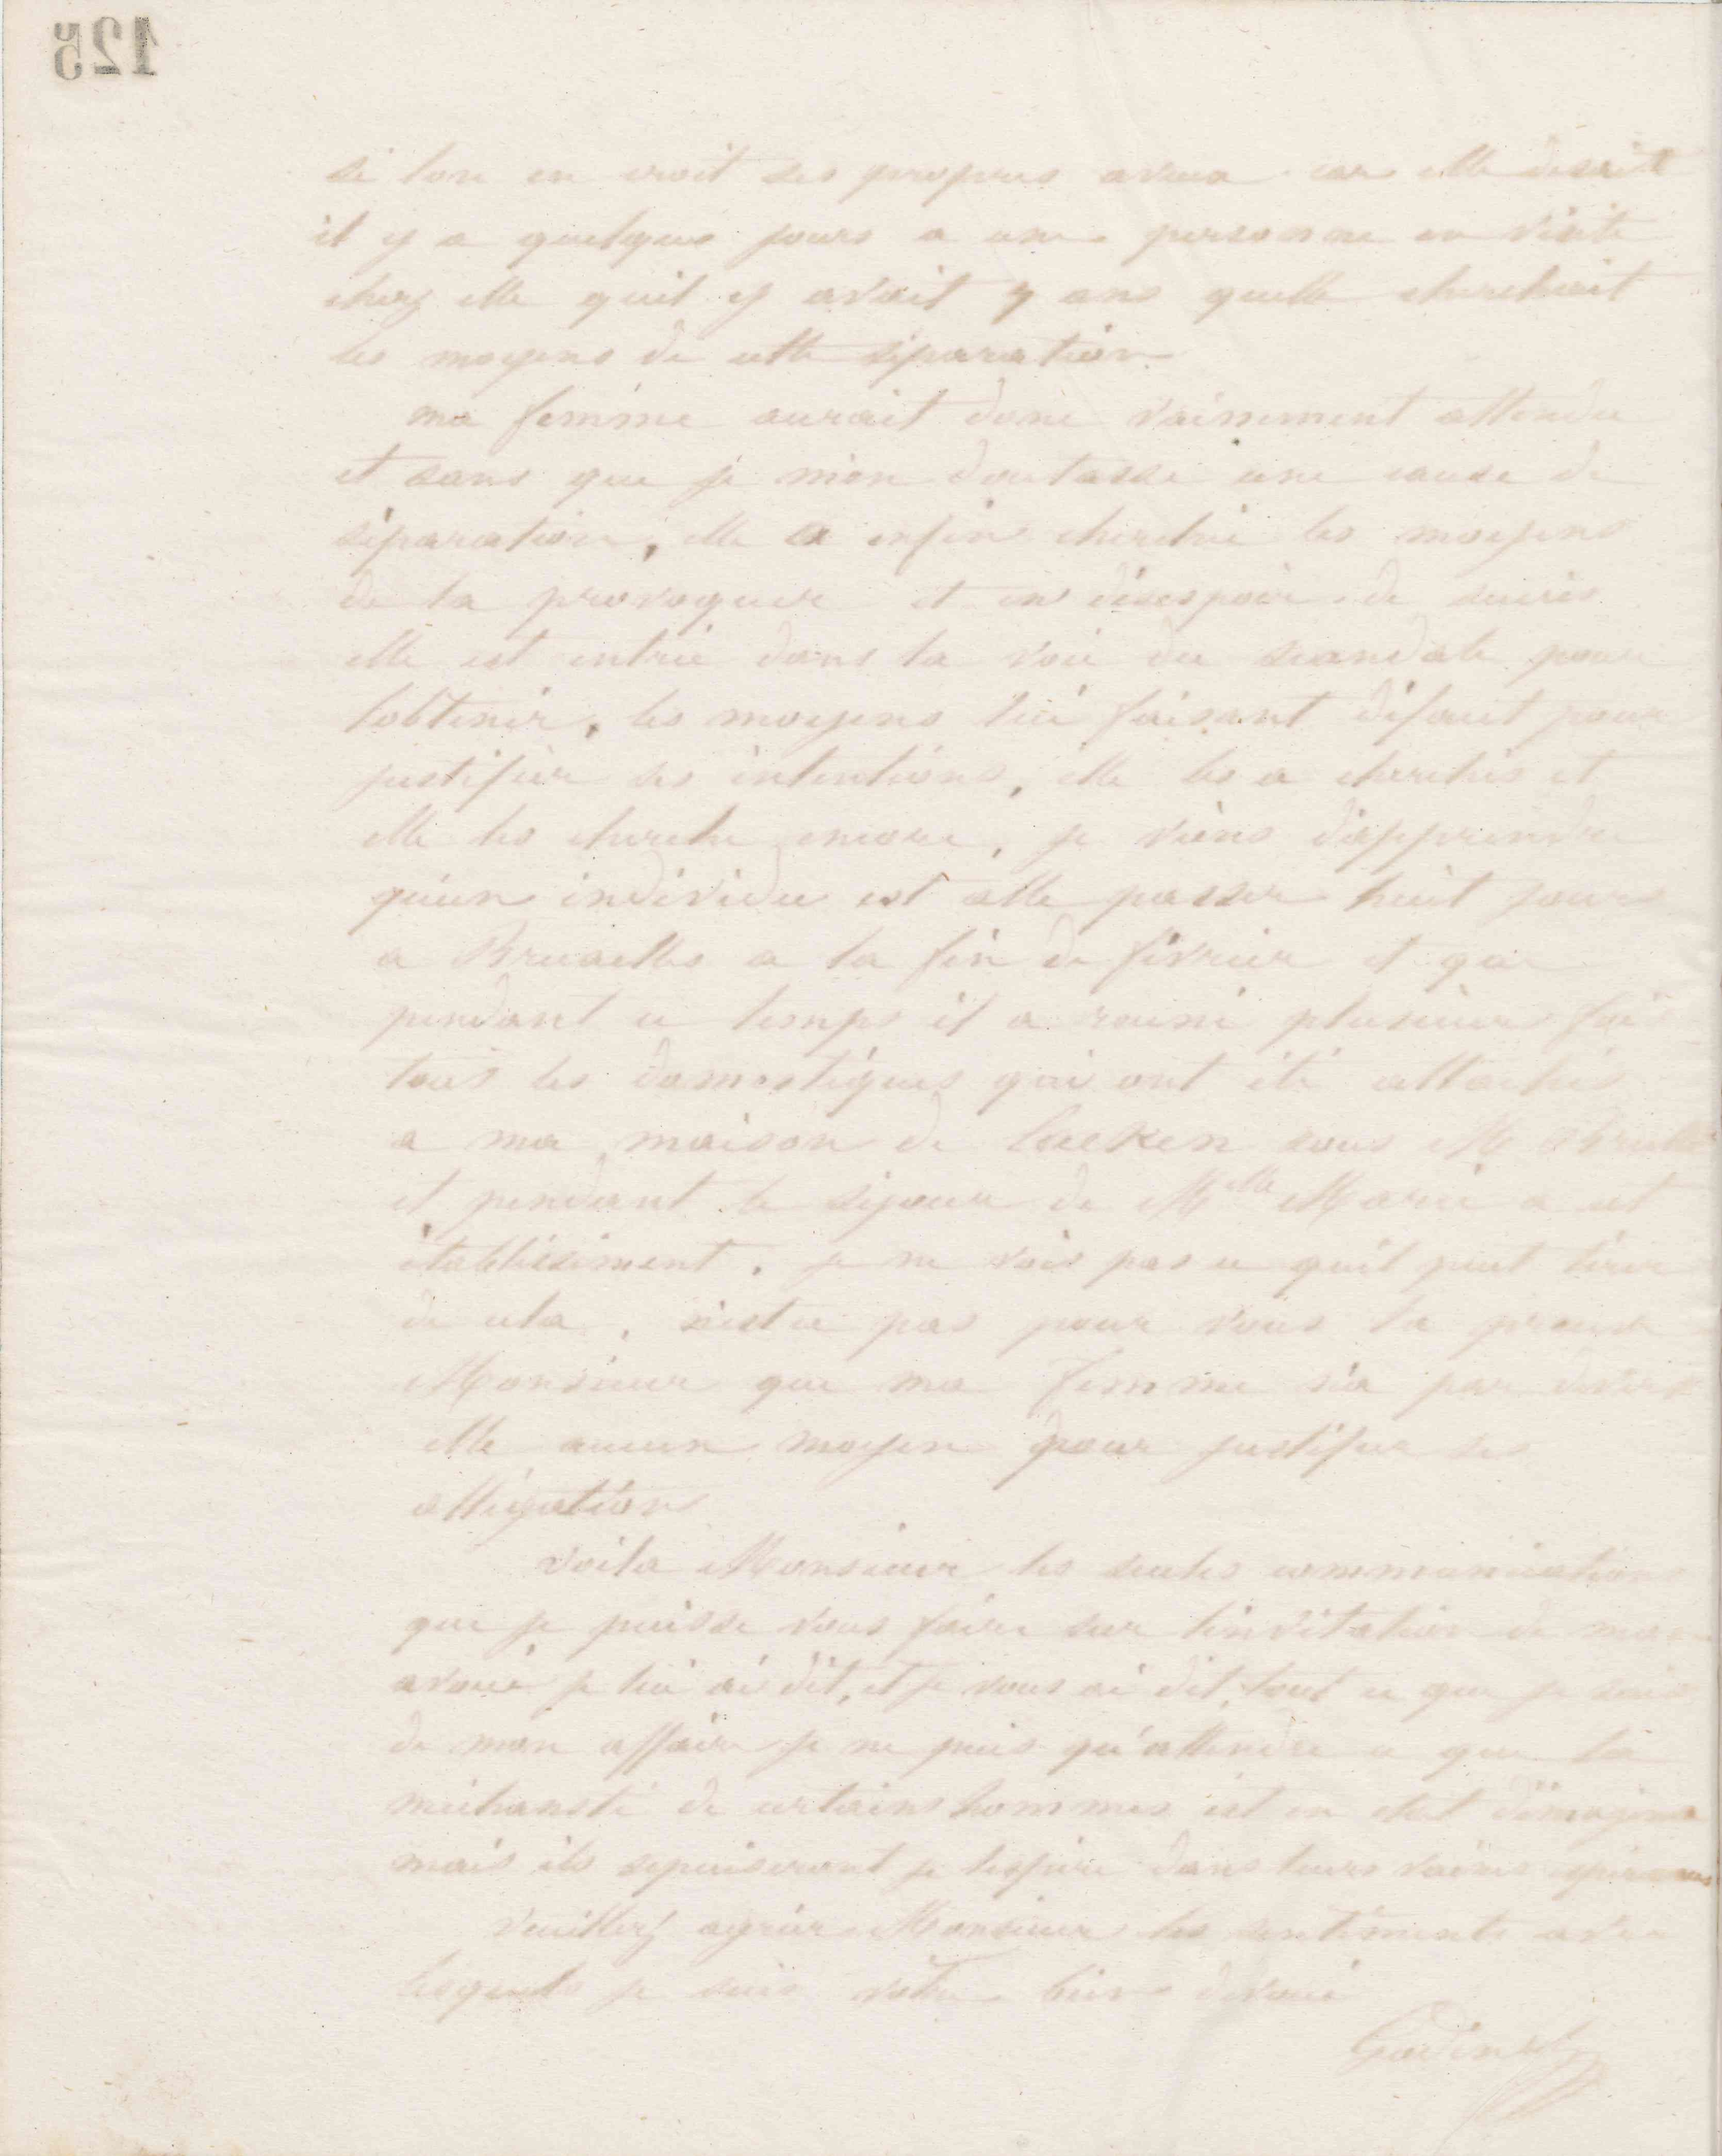 125
si lon en croit ses propres aveux car elle disait
il y a quelques jours a une personne en visite
chez elle quil y avait 7 ans quelle cherchait
les moyens de cette séparation
ma femme aurait donc vainement attendu
et sans que je m'en doutasse une cause de
séparation, elle a enfin cherché les moyens
de la provoquer et en désespoir de
elle est entrée dans la voie du scandale pour
l'obtenir, les moyens lui faisant défaut pour
justifier ses intentions, elle les a cherchés et
elle les cherche encore, je viens d'apprendre
qu'un individu est allé passer huit jours
a Bruxelles a la fin de février et que
pendant ce temps il a reuni plusieurs fois
tous les domestiques qui ont été attachés
a ma maison de Laeken sous M
et pendant le séjour de Mlle Marie a cet
établissement. je ne vois pas ce quil peut tirer
de cela, n'est ce pas pour vous la preuve
Monsieur que ma femme n'a par devers
elle aucun moyen pour justifier ses
allégations
voila Monsieur les seules communications
que je puisse vous faire sur linvitation de mon
avoué je lui ai dit, et je vous ai dit, tout ce que je sais
de mon affaire je ne puis qu'attendre ce que la
méchanceté de certains hommes est en état d'imaginer
mais ils sepuiseront je lespère dans leurs vaines espérances
veuillez agréer Monsieur les sentiments avec
lesquels je suis votre bien dévoué
Godin